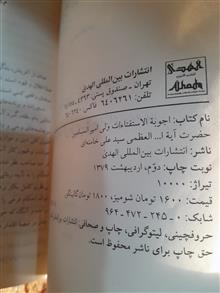 الهدی
انتشارات بین‌المللی الهدی
تهران - صندوق پستی ۴۳۶۳-
تلفن: ۶۴۰۶۲۶۱ فاکس
نام کتاب: اجوبة الاستفتاءات ولی امر المسلمین
حضرت آیة ا... العظمی سید علی خامنه‌ای
ناشر: انتشارات بین‌المللی الهدی
نوبت چاپ: دوّم، اردیبهشت ۱۳۷۹
تیراژ: ۱۰۰۰۰
قیمت: ۱۶۰۰ تومان شومیز، ۱۸۰۰ تومان گالینگور
شابک: ۰-۲۴۵-۴۷۲-۹۶۴
حروفچینی، لیتوگرافی، چاپ و صحافی: انتشارات
حق چاپ برای ناشر محفوظ است.